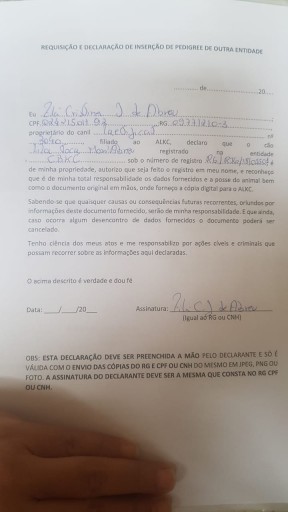 REQUISIÇÃO E DECLARAÇÃO DE INSERÇÃO DE PEDIGREE DE OUTRA ENTIDADE
de 20
Eu de Abreu
CPF RG
proprietário do canil
filiado ao ALKC, declaro que o cão
registrado na entidade
CBKC sob o número de registro é
de minha propriedade, autorizo que seja feito o registro em meu nome, e reconheço
que é de minha total responsabilidade os dados fornecidos e a posse do animal bem
como o documento original em mãos, onde forneço a cópia digital para o ALKC.
Sabendo-se que quaisquer causas ou consequências futuras recorrentes, oriundas por
informações deste documento fornecido, serão de minha responsabilidade. E que ainda,
caso ocorra algum desencontro de dados fornecidos o documento poderá ser
cancelado.
Tenho ciência dos meus atos e me responsabilizo por ações cíveis e criminais que
possam recorrer sobre as informações aqui declaradas.
O acima descrito é verdade e dou fé
Data: ___/___/20___ Assinatura: de Abreu
(Igual ao RG ou CNH)
OBS: ESTA DECLARAÇÃO DEVE SER PREENCHIDA A MÃO PELO DECLARANTE E SÓ É
VÁLIDA COM O ENVIO DAS CÓPIAS DO RG E CPF OU CNH DO MESMO EM JPEG, PNG OU
FOTO. A ASSINATURA DO DECLARANTE DEVE SER A MESMA QUE CONSTA NO RG CPF
OU CNH.